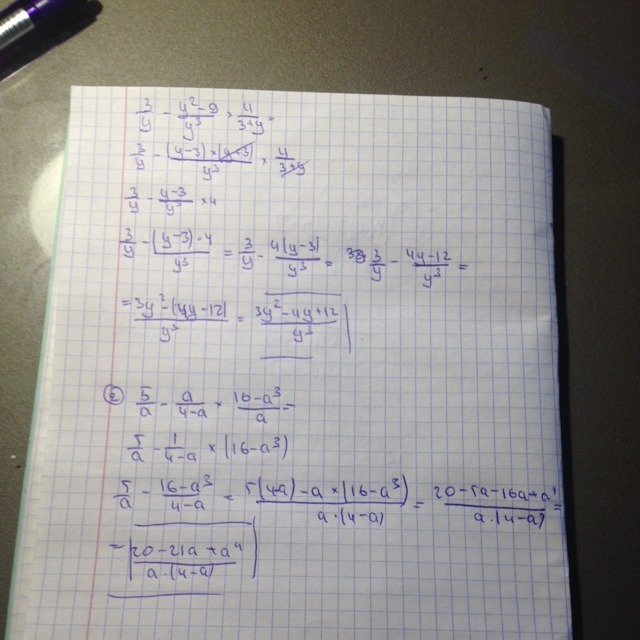 3/y - (y²-9)/y³ × 4/(3+y) =
3/y - ((y-3)×(y+3))/y³ × 4/(3+y)
3/y - (y-3)/y³ × 4
3/y - ((y-3)·4)/y³ = 3/y - 4(y-3)/y³ = 3/y - (4y-12)/y³ =
= (3y²-(4y-12))/y³ = (3y²-4y+12)/y³
② 5/a - a/(4-a) × (16-a³)/a =
5/a - 1/(4-a) × (16-a³)
5/a - (16-a³)/(4-a) = (5(4-a)-a×(16-a³))/(a·(4-a)) = (20-5a-16a+a⁴)/(a·(4-a)) =
= (20-21a+a⁴)/(a·(4-a))